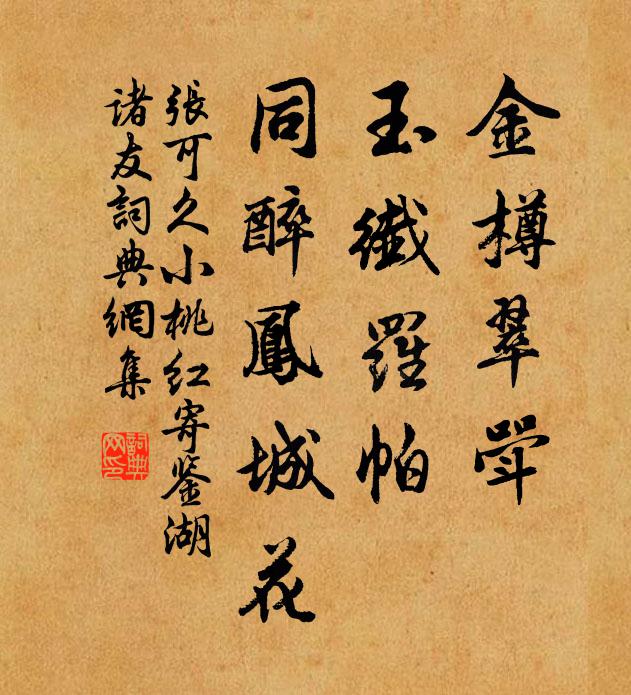 金樽翠斝
玉纖羅帕
同醉鳳城花
張可久小桃紅寄鑒湖
諸友詞典網集
詞典网印